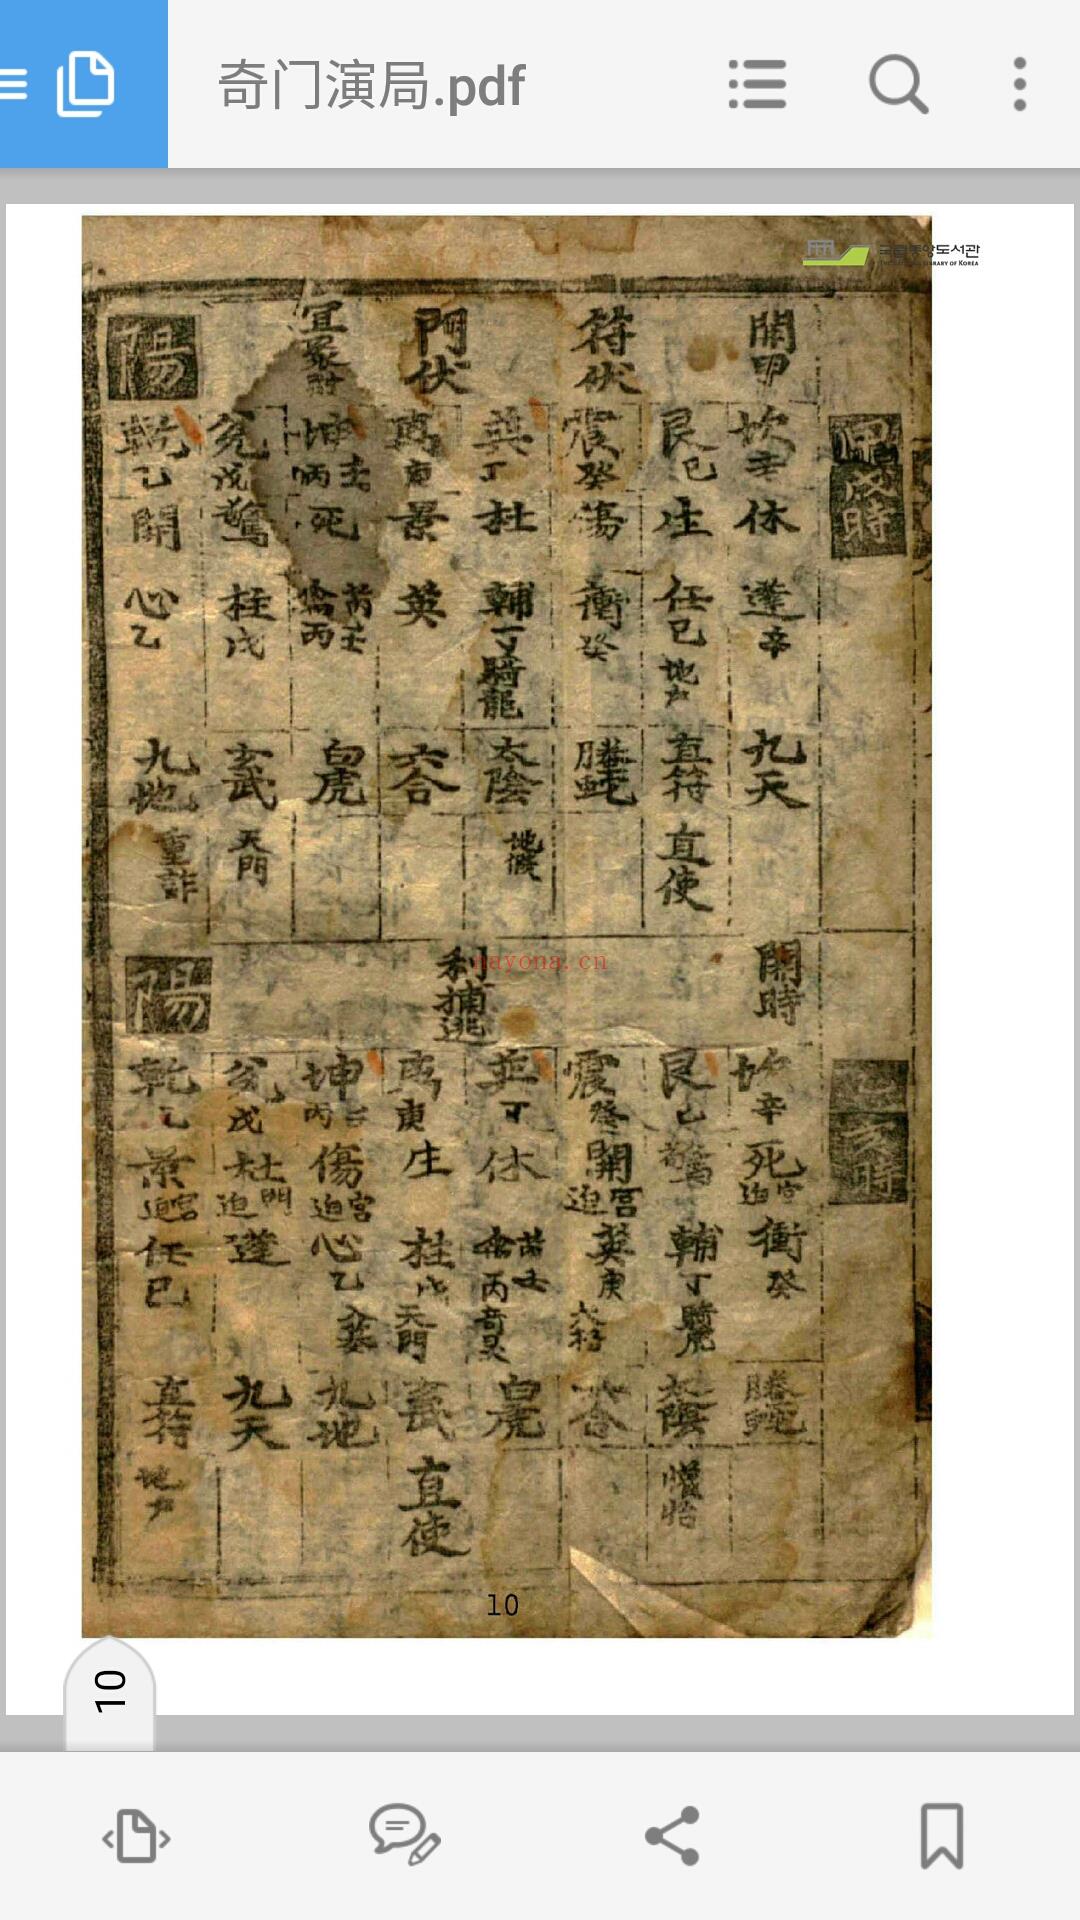 奇门演局.pdf
국립중앙도서관
THE NATIONAL LIBRARY OF KOREA
開甲
符伏
門伏
陽
戌時
坎 艮 震 巽 离 坤 兊 乾
辛 己 癸 丁 庚 壬丙 戊 乙
休 生 傷 杜 景 死 驚 開
蓬 任 衝 輔 英 芮禽 柱 心
辛 己 癸 丁 壬丙 戊 乙
地戶 騎龍
九天 直符 螣蛇 太陰 六合 白虎 玄武 九地
直使 地假 天門 重詐
nayona.cn
開時
利捕逃
陽
亥時
坎 艮 震 巽 离 坤 兊 乾
辛 己 癸 丁 庚 壬丙 戊 乙
死 驚 開 休 生 傷 杜 景
宮迫 宮迫 宮迫 門迫 宮迫
衝 輔 英 芮禽 柱 心 蓬 任
癸 丁 庚 壬丙 戊 乙 己
天門 入墓
螣蛇 太陰 六合 白虎 玄武 九地 九天 直符
直使 地戶
10
10